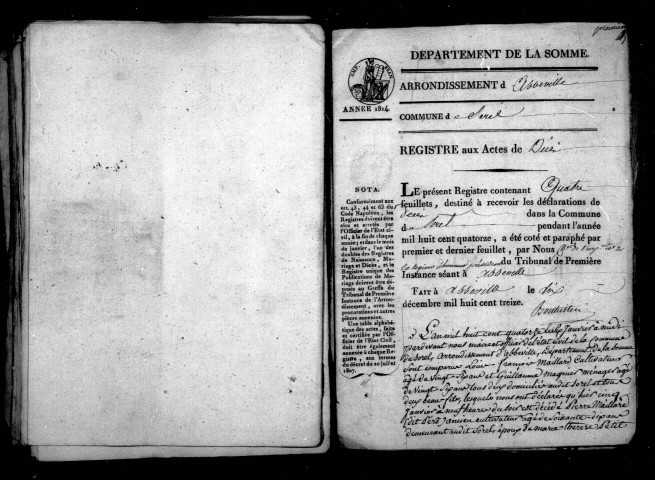 DÉPARTEMENT DE LA SOMME.
EMP. FRAN.
ANNÉE 1814.
ARRONDISSEMENT d'Abbeville
COMMUNE de Sorel
REGISTRE aux Actes de Décès
NOTA.
Conformément aux
art. 43, 44 et 63 du
Code Napoléon, les
Registres doivent être
clos et arrêtés par
l'Officier de l'Etat ci-
vil, à la fin de chaque
année; et dans le mois
de janvier, l'un des
doubles des Registres
de Naissance, Ma-
riage et Décès, et le
Registre unique des
Publications de Ma-
riage doivent être dé-
posés au Greffe du
Tribunal de Première
Instance de l'Arron-
dissement, avec les
procurations et autres
pièces annexées.
Une table alphabé-
tique des actes, faite
et certifiée par l'Of-
ficier de l'Etat Civil,
doit être également
annexée à chaque Re-
gistre, aux termes
du décret du 20 juillet
1807.
LE présent Registre contenant Quatre
feuillets, destiné à recevoir les déclarations de
Décès dans la Commune
de Sorel pendant l'année
mil huit cent quatorze, a été coté et paraphé par
premier et dernier feuillet, par Nous
du Tribunal de Première
Instance séant à Abbeville
FAIT à Abbeville le dix
décembre mil huit cent treize.
L'an mil huit cent quatorze le six Janvier à midi
pardevant nous maire officier de l'état civil de la Commune
de Sorel, Arrondissement d'abbeville, Département de la Somme
sont comparus Louis François Maillard Cultivateur
âgé de vingt sept ans et Guillaume Magnier ménager âgé
de vingt sept ans tous deux domiciliés audit Sorel et
deux beau-fils, lesquels nous ont déclaré qu'hier cinq
Janvier à neuf heures du soir est décédé Pierre Maillard
ancien cultivateur âgé de soixante sept ans
demeurant audit Sorel, époux de marie therese Petit